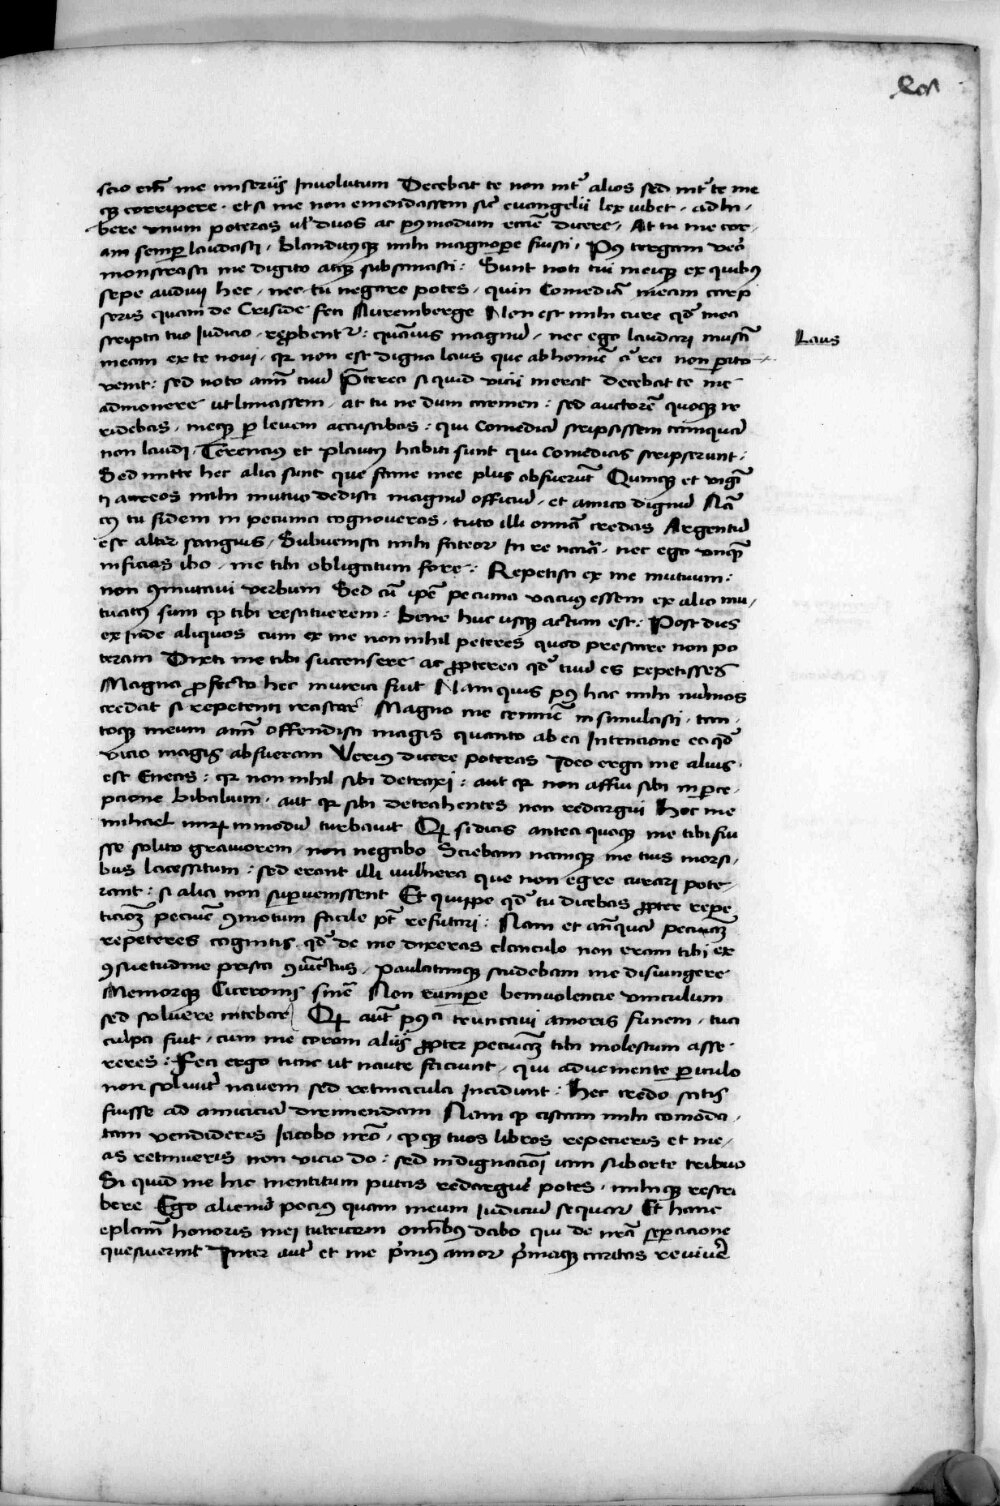 scio em̄ me miseriis Involutum Decebat te non int̄ alios sed int̄ te me
qꝫ corripere · et si me non emendassem sic̄ evangelii lex iubet · adhi,
bere vnum poteras ul̄ duos ac p9modum eccīe dicere, At tu me cor,
am semꝑ laudasti, blanditusqꝫ mihi magnoꝑe fuisti, P9 tergum vero
monstrasti me digito atqꝫ subsannasti: Sunt noti tui meiqꝫ ex quibus
sepe audivi hec, nec tu negare potes, quin Comediā meam carp
seris quam de Criside feci Nuremberge Non est mihi cure qd̄ mea
scripta tuo Iudicio, reꝓbent᷑: quāvis magnū, nec ego laudari musā
meam ex te novi, qꝛ non est digna laus que ab homīe ei9 rei non ꝑito
Laus
venit: sed noto anīm tuū Pretereа si quid vicii inerat decebat te me
admonere ut limassem, at tu ne dum carmen: sed auctorē quoqꝫ ir
ridebas, meqꝫ ꝑ levem accusabas: qui Comediā scripsissem tamquā
non laudi, Terencius et Plautus habiti sunt qui Comedias scripserunt:
Sed mitte hec alia sunt que fame mee plus obfuerūt Quinqꝫ et vigī
ti aureos mihi mutuo dedisti magnū officiū, et amico dignū Nā
cū tu fidem in pecunia cognoveras, tuto illi omīa credas Argentū
est alter sanguis, Subvenisti mihi fateor In re nccāria, nec ego vnqꝫ
inficias ibo, me tibi obligatum fore: Repetisti ex me mutuum:
non ꝯmutavi verbum Sed cū ipse pecunia vacuus essem ex alio mu,
tuatus sum qd tibi restituerem: bene huc usqꝫ actum est: Post dies
ex inde aliquos cum ex me non nihil peteres quod prestare non po
teram Dixti me tibi succensere ac ꝓpterea qd̄ tuū es repetisses
Magna ꝓfecto hec iniuria fuit Nam quis p9 hac mihi nūmos
credat si repetenti irascar Magno me crimīe insimulasti, tan,
toqꝫ meum anīm offendisti magis quanto ab ea Intencione eoqꝫ
vicio magis abfueram Verius dicere poteras Ideo erga me alius
est Eneas: qꝛ non nihil sibi detraxi: aut qꝛ non affui sibi in ꝑce,
pcione bibalium, aut qꝛ sibi detrahentes non redargui Hoc me
mihael mirū in modū turbavit Qꝫ si dicas antea quoqꝫ me tibi fui
sse solito graviorem, non negabo Sciebam namqꝫ me tuis morsi,
bus lacessitum: sed erant illi vulnera que non egre curari pote,
rant: si alia non suꝑvenissent Et quippe qd̄ tu dicebas ꝓpter repe
ticionē pecunie ꝯmotum facile pt̄ refutari: Nam et an̄quā pecuniā
repeteres cognitis qd̄ de me dixeras clanculo non eram tibi ex
ꝯsuetudine prisca ꝯiūctus, paulatimqꝫ studebam me disiungere
Memorqꝫ Ciceronis sinē Non rumꝑe benivolencie vinculum
sed solvere nitebar Qꝫ aūt p9ea truncavi amoris funem, tua
culpa fuit, cum me coram aliis ꝓpter pecuniā tibi molestum asse,
reres: Feci ergo tunc ut naute faciunt, qui advemente ꝑiculo
non solvūt navem sed retinacula Incidunt: Hec credo satis
fuisse ad amiciciā dirimendam Nam qd cistam mihi comōda,
tam vendideris Iacobo nrō, qd qꝫ tuos libros repecieris et me,
as retinueris non vicio do: sed indignacioni iam suborte tribuo
Si quid me hic mentitum putas redarguē potes, mihiqꝫ rescri
bere Ego alienū pocius quam meum Iudiciū sequar Et hanc
eplam̄ honoris mei tutricem omībus dabo qui de nrā seꝑacione
quesiverint Inter aūt et me prīus amor prīaqꝫ caritas revivēt